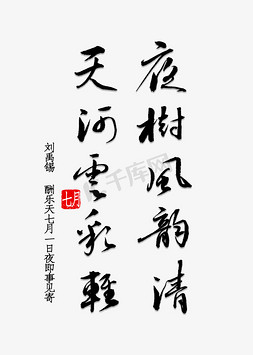 夜樹風韵清
天河雲彩輕
七月
刘禹锡 酬乐天七月一日夜即事见寄
千库网